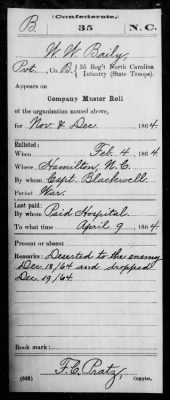 (Confederate.)
B 35 N.C.
W. W. Baily,
Pvt., Co. B, 35 Reg't North Carolina
Infantry (State Troops).
Appears on
Company Muster Roll
of the organization named above,
for Nov. & Dec., 1864.
Enlisted:
When Feb. 4, 1864.
Where Hamilton, N.C.
By whom Capt. Blackwell.
Period War.
Last paid:
By whom Paid Hospital.
To what time April 9, 1864.
Present or absent
Remarks: Deserted to the enemy
Dec. 18/64 and dropped
Dec. 19/64.
Book mark:
F. C. Pratz,
(642) Copyist.